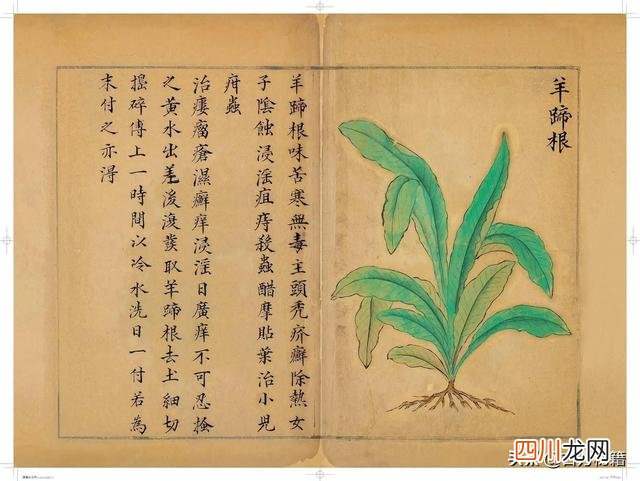 羊蹄根
羊蹄根味苦寒無毒主頭禿疥癬除熱女
子陰蝕浸淫疽痔殺蟲醋摩貼葉治小兒
疳蟲
治瘻瘤瘡濕癬痒浸淫日廣痒不可忍搔
之黃水出差後復發取羊蹄根去土細切
搗碎傅上一時間以冷水洗日一付若為
末付之亦得
四川龙网